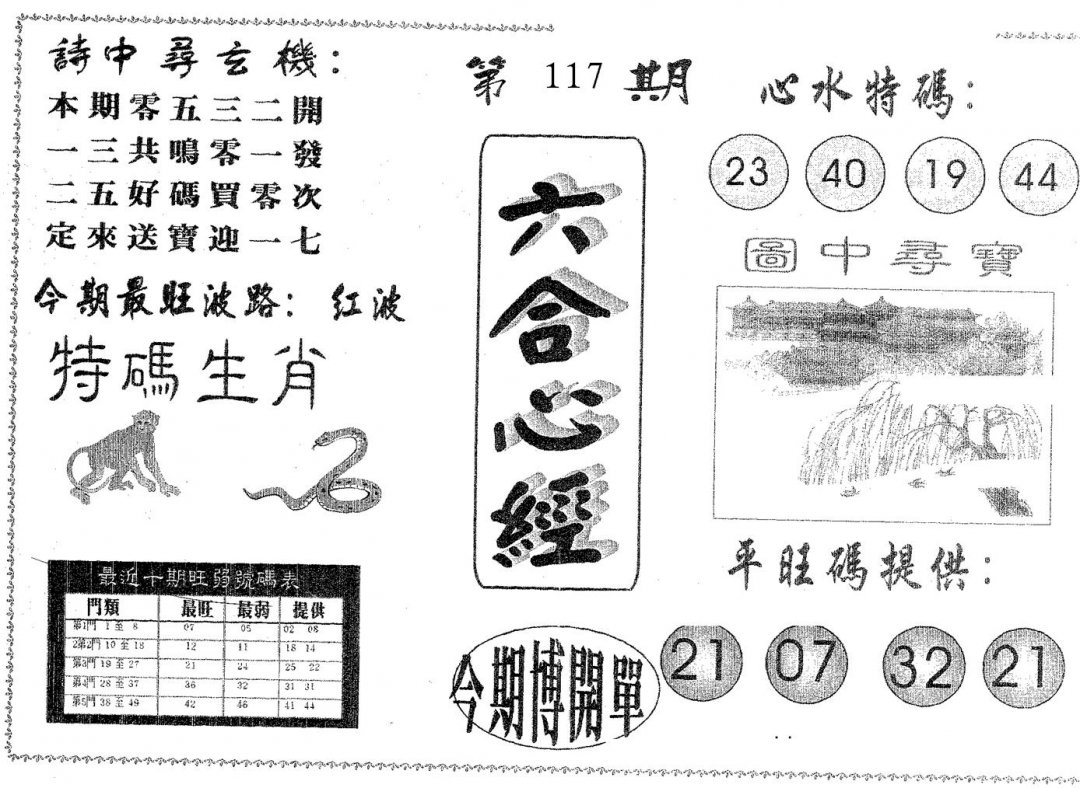 詩中尋玄機：
本期零五三二開
一三共鳴零一發
二五好碼買零次
定來送寶迎一七
今期最旺波路：紅波
特碼生肖
最近十期旺弱號碼表
門類 最旺 最弱 提供
第1門 1 至 8 07 05 02 08
2第2門 10 至 18 12 11 18 14
第3門 19 至 27 21 24 25 22
第4門 28 至 37 36 32 31 31
第5門 38 至 49 42 46 41 44
第 117 期
六合心經
今期博開單
心水特碼：
23 40 19 44
圖中尋寶
平旺碼提供：
21 07 32 21